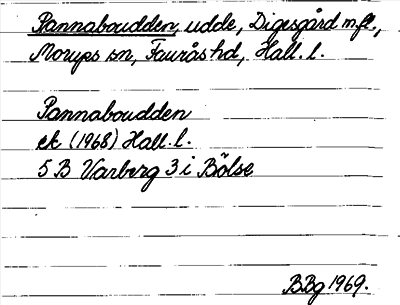 Pannaboudden, udde, Digesgård m.fl.,
Morups sn, Faurås hd, Hall. l.
Pannaboudden
ek (1968) Hall. l.
5 B Varberg 3 i Bölse
BBg 1969.